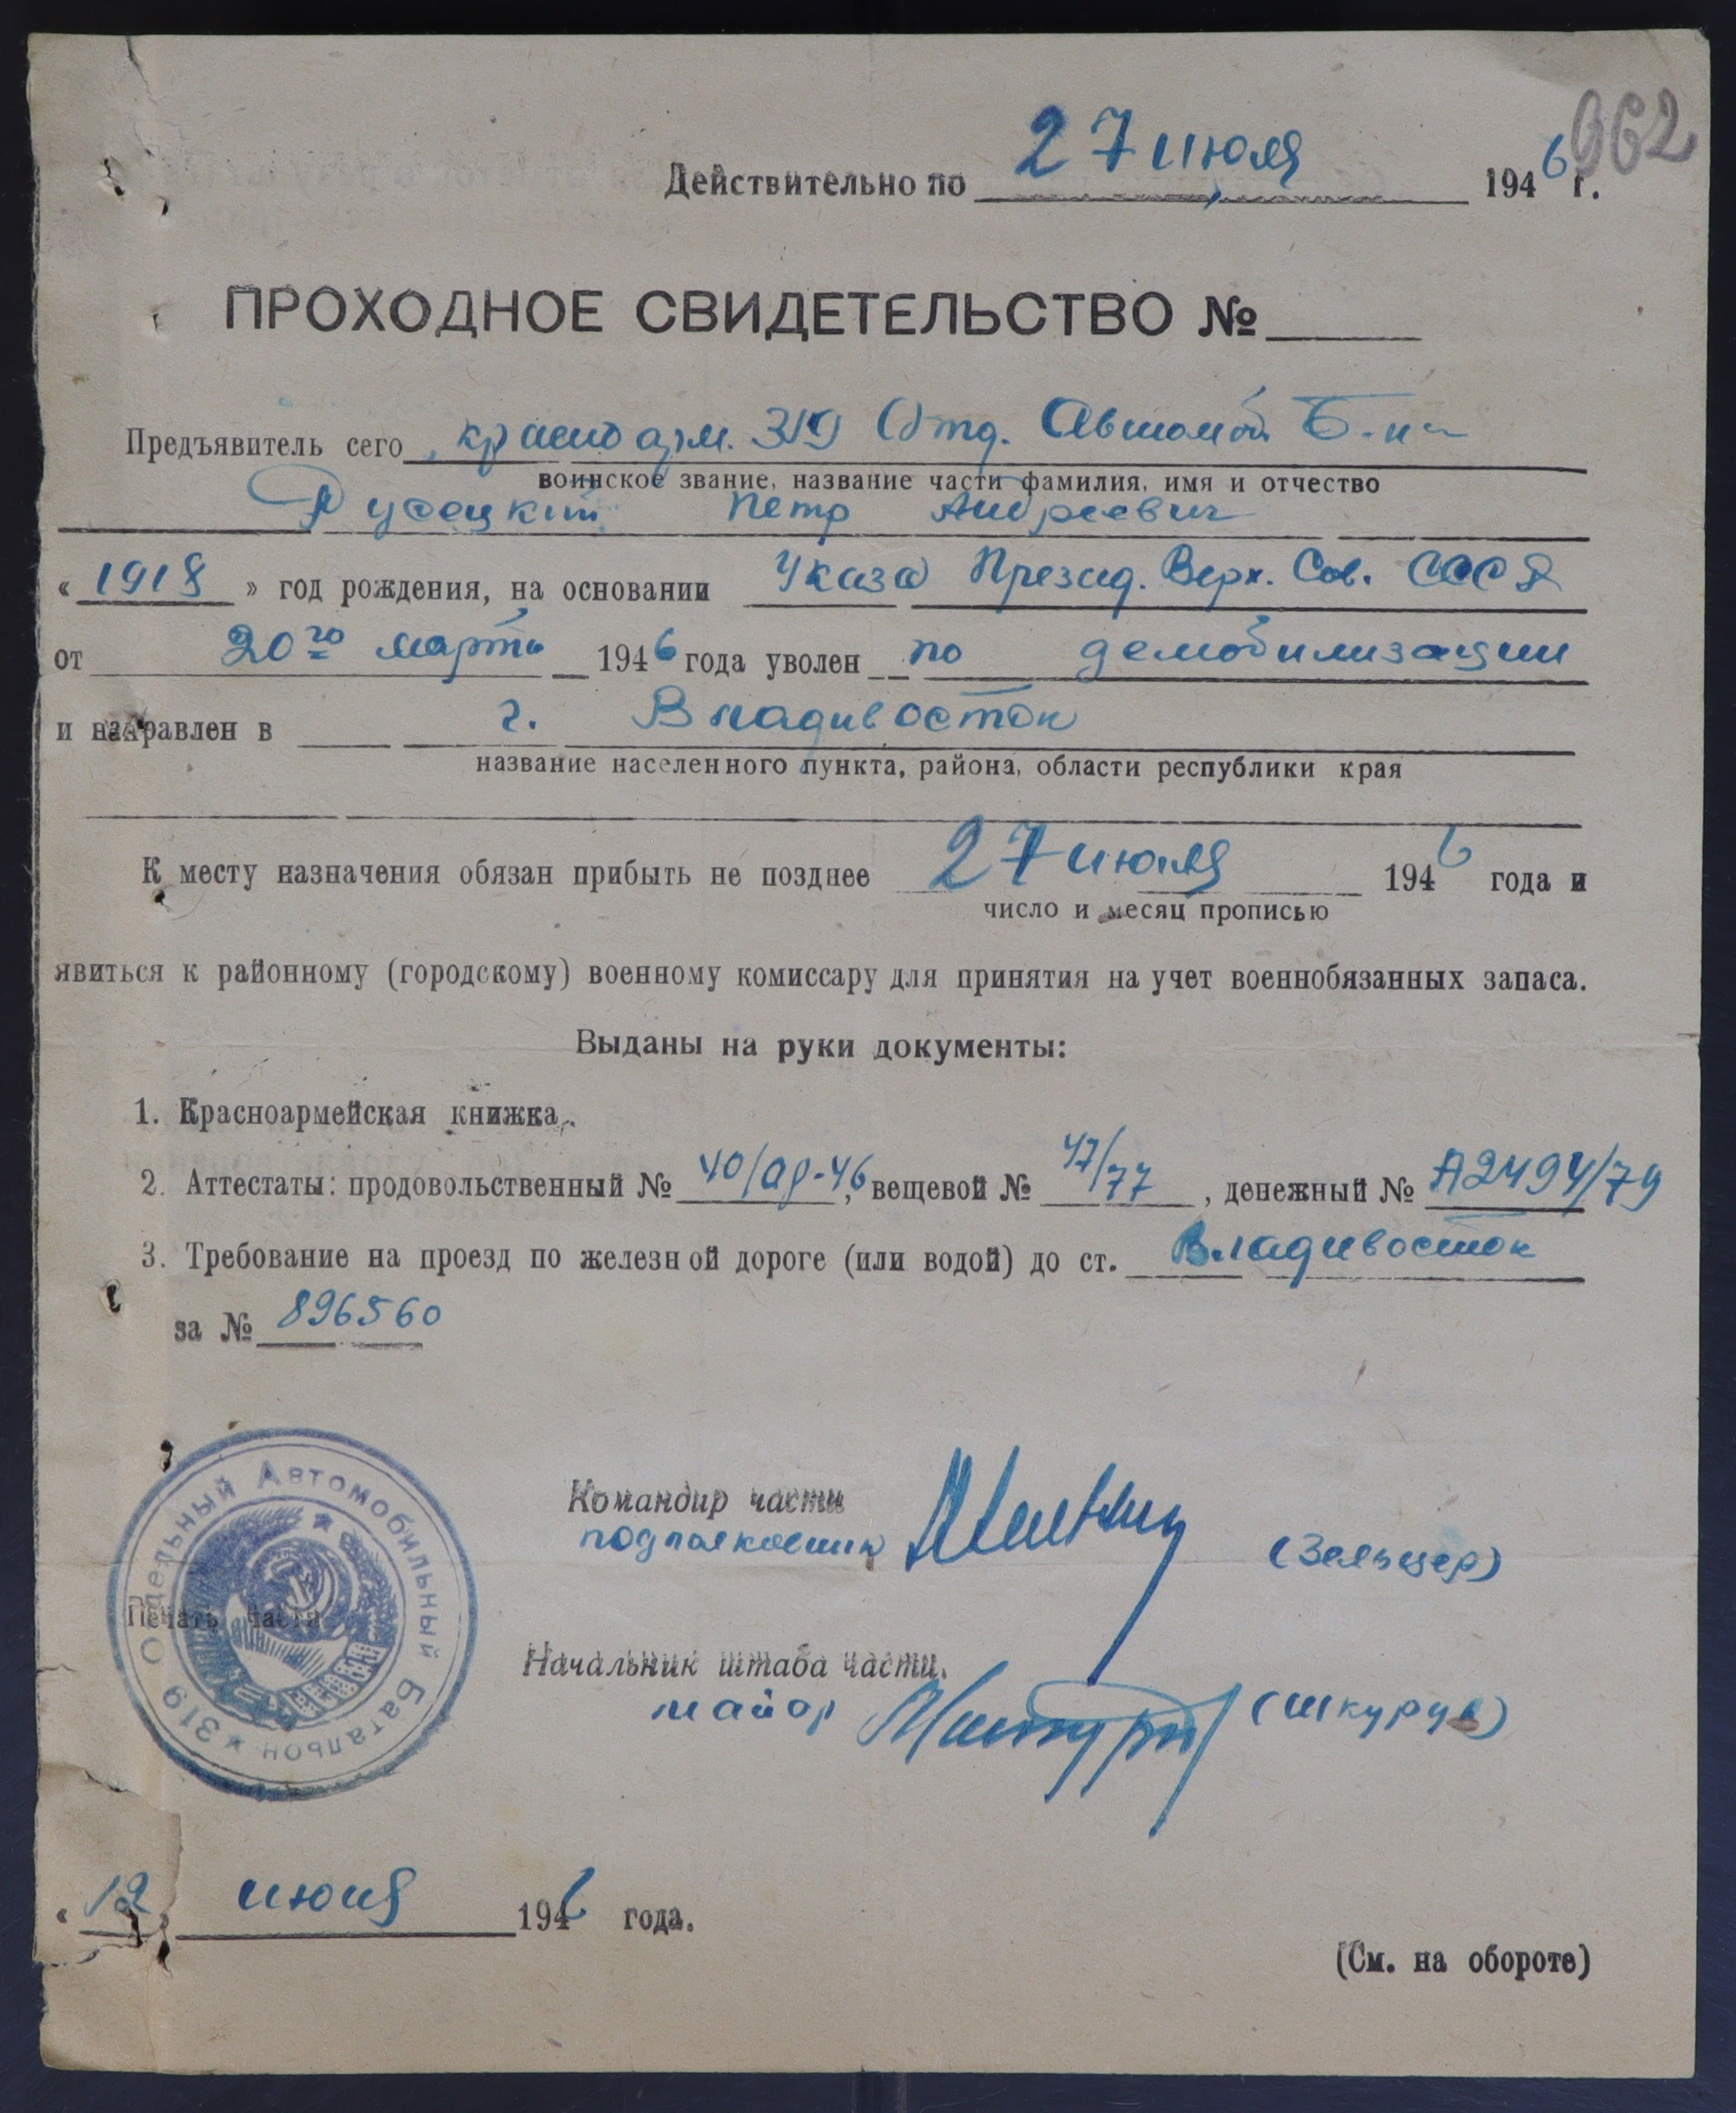 962
Действительно по 27 июля 1946 г.
ПРОХОДНОЕ СВИДЕТЕЛЬСТВО №
Предъявитель сего красноарм. 319 Отд. Автомоб. Б-на
воинское звание, название части фамилия, имя и отчество
Петр Андреевич
« 1918 » год рождения, на основании Указа Презид. Верх. Сов. СССР
от 20го марта 1946 года уволен по демобилизации
и направлен в г. Владивосток
название населенного пункта, района, области республики края
К месту назначения обязан прибыть не позднее 27 июля 1946 года и
число и месяц прописью
явиться к районному (городскому) военному комиссару для принятия на учет военнобязанных запаса.
Выданы на руки документы:
1. Красноармейская книжка.
2. Аттестаты: продовольственный № 40/ад-46, вещевой № 47/77, денежный № А2494/79
3. Требование на проезд по железной дороге (или водой) до ст. Владивосток
за № 896560
319 Отдельный Автомобильный Батальон
Командир части
подполковник (Зельцер)
Печать части
Начальник штаба части.
майор
« 12 » июня 1946 года.
(См. на обороте)